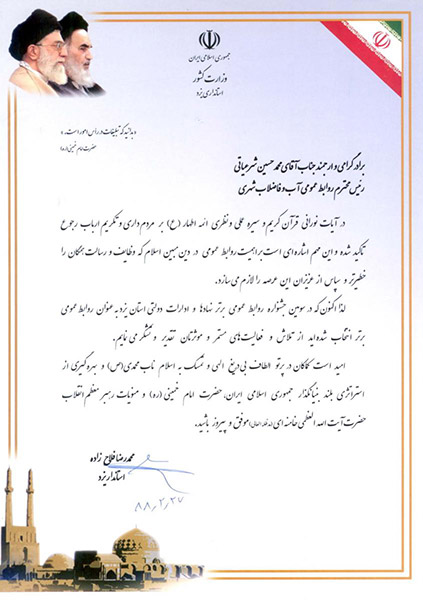 جمهوری اسلامی ایران
وزارت کشور
استانداری یزد
« بدانید که تبلیغات در رأس امور است. »
حضرت امام خمینی (ره)
برادر گرامی و ارجمند جناب آقای محمد حسین شرعیاتی
رئیس محترم روابط عمومی آب و فاضلاب شهری
در آیات نورانی قرآن کریم و سیره عملی و نظری ائمه اطهار (ع) بر مردم داری و تکریم ارباب رجوع
تاکید شده و این مهم اشاره ای است بر اهمیت روابط عمومی در دین مبین اسلام که وظایف و رسالت همگان را
خطیرتر و سپاس از عزیزان این عرصه را لازم می سازد.
لذا اکنون که در سومین جشنواره روابط عمومی برتر نهادها و ادارات دولتی استان یزد به عنوان روابط عمومی
برتر انتخاب شده اید از تلاش و فعالیت های مستمر و موثرتان تقدیر و تشکر می نمایم.
امید است کماکان در پرتو الطاف بی دریغ الهی و تمسک به اسلام ناب محمدی (ص) و بهره گیری از
استراتژی بلند بنیانگذار جمهوری اسلامی ایران، حضرت امام خمینی (ره) و منویات رهبر معظم انقلاب
حضرت آیت الله العظمی خامنه ای (مدظله العالی) موفق و پیروز باشید.
محمد رضا فلاح زاده
استاندار یزد
۸۸,۲,۲۷